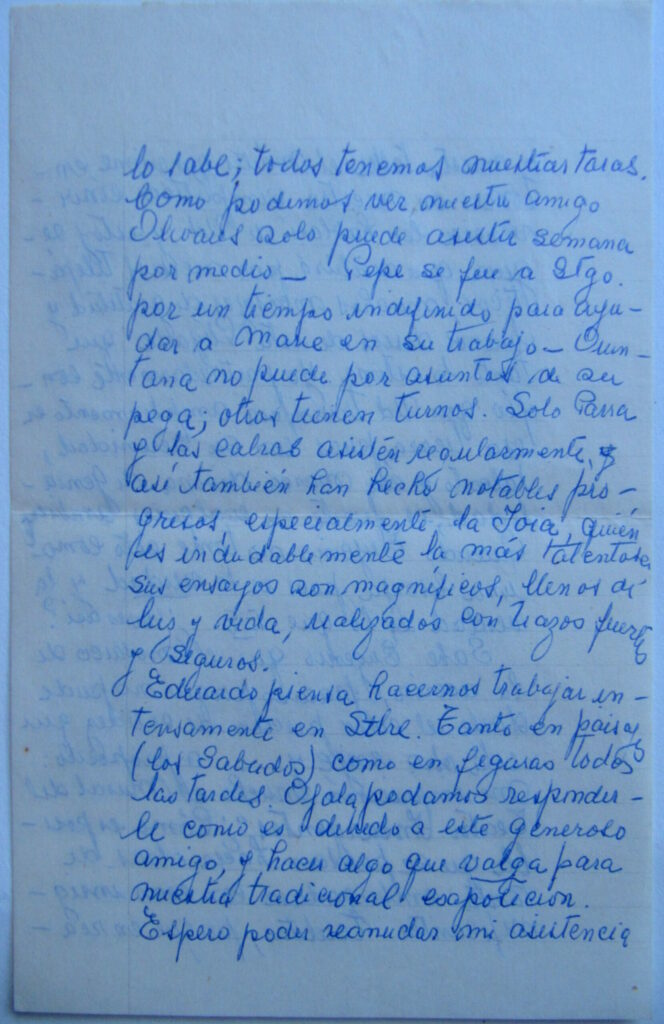 lo sabe; todos tenemos nuestras taras.
Como podemos ver, nuestro amigo
Olivares solo puede asistir semana
por medio — Pepe se fue a Stgo.
por un tiempo indefinido para ayu-
dar a Mane en su trabajo — Quin-
tana no puede por asuntos de su
pega; otros tienen turnos. Solo Parra
y las cabras asisten regularmente, y
así también han hecho notables pro-
gresos, especialmente la Toia, quién
es indudablemente la más talentosa
sus ensayos son magníficos, llenos de
luz y vida, realizados con trazos fuertes
y seguros.
Eduardo piensa hacernos trabajar in-
tensamente en Stbre. Tanto en paisaje
(los Sabados) como en figuras todas
las tardes. Ojala podamos responder-
le como es debido a este generoso
amigo, y hacer algo que valga para
nuestra tradicional exposicion.
Espero poder reanudar mi asistencia